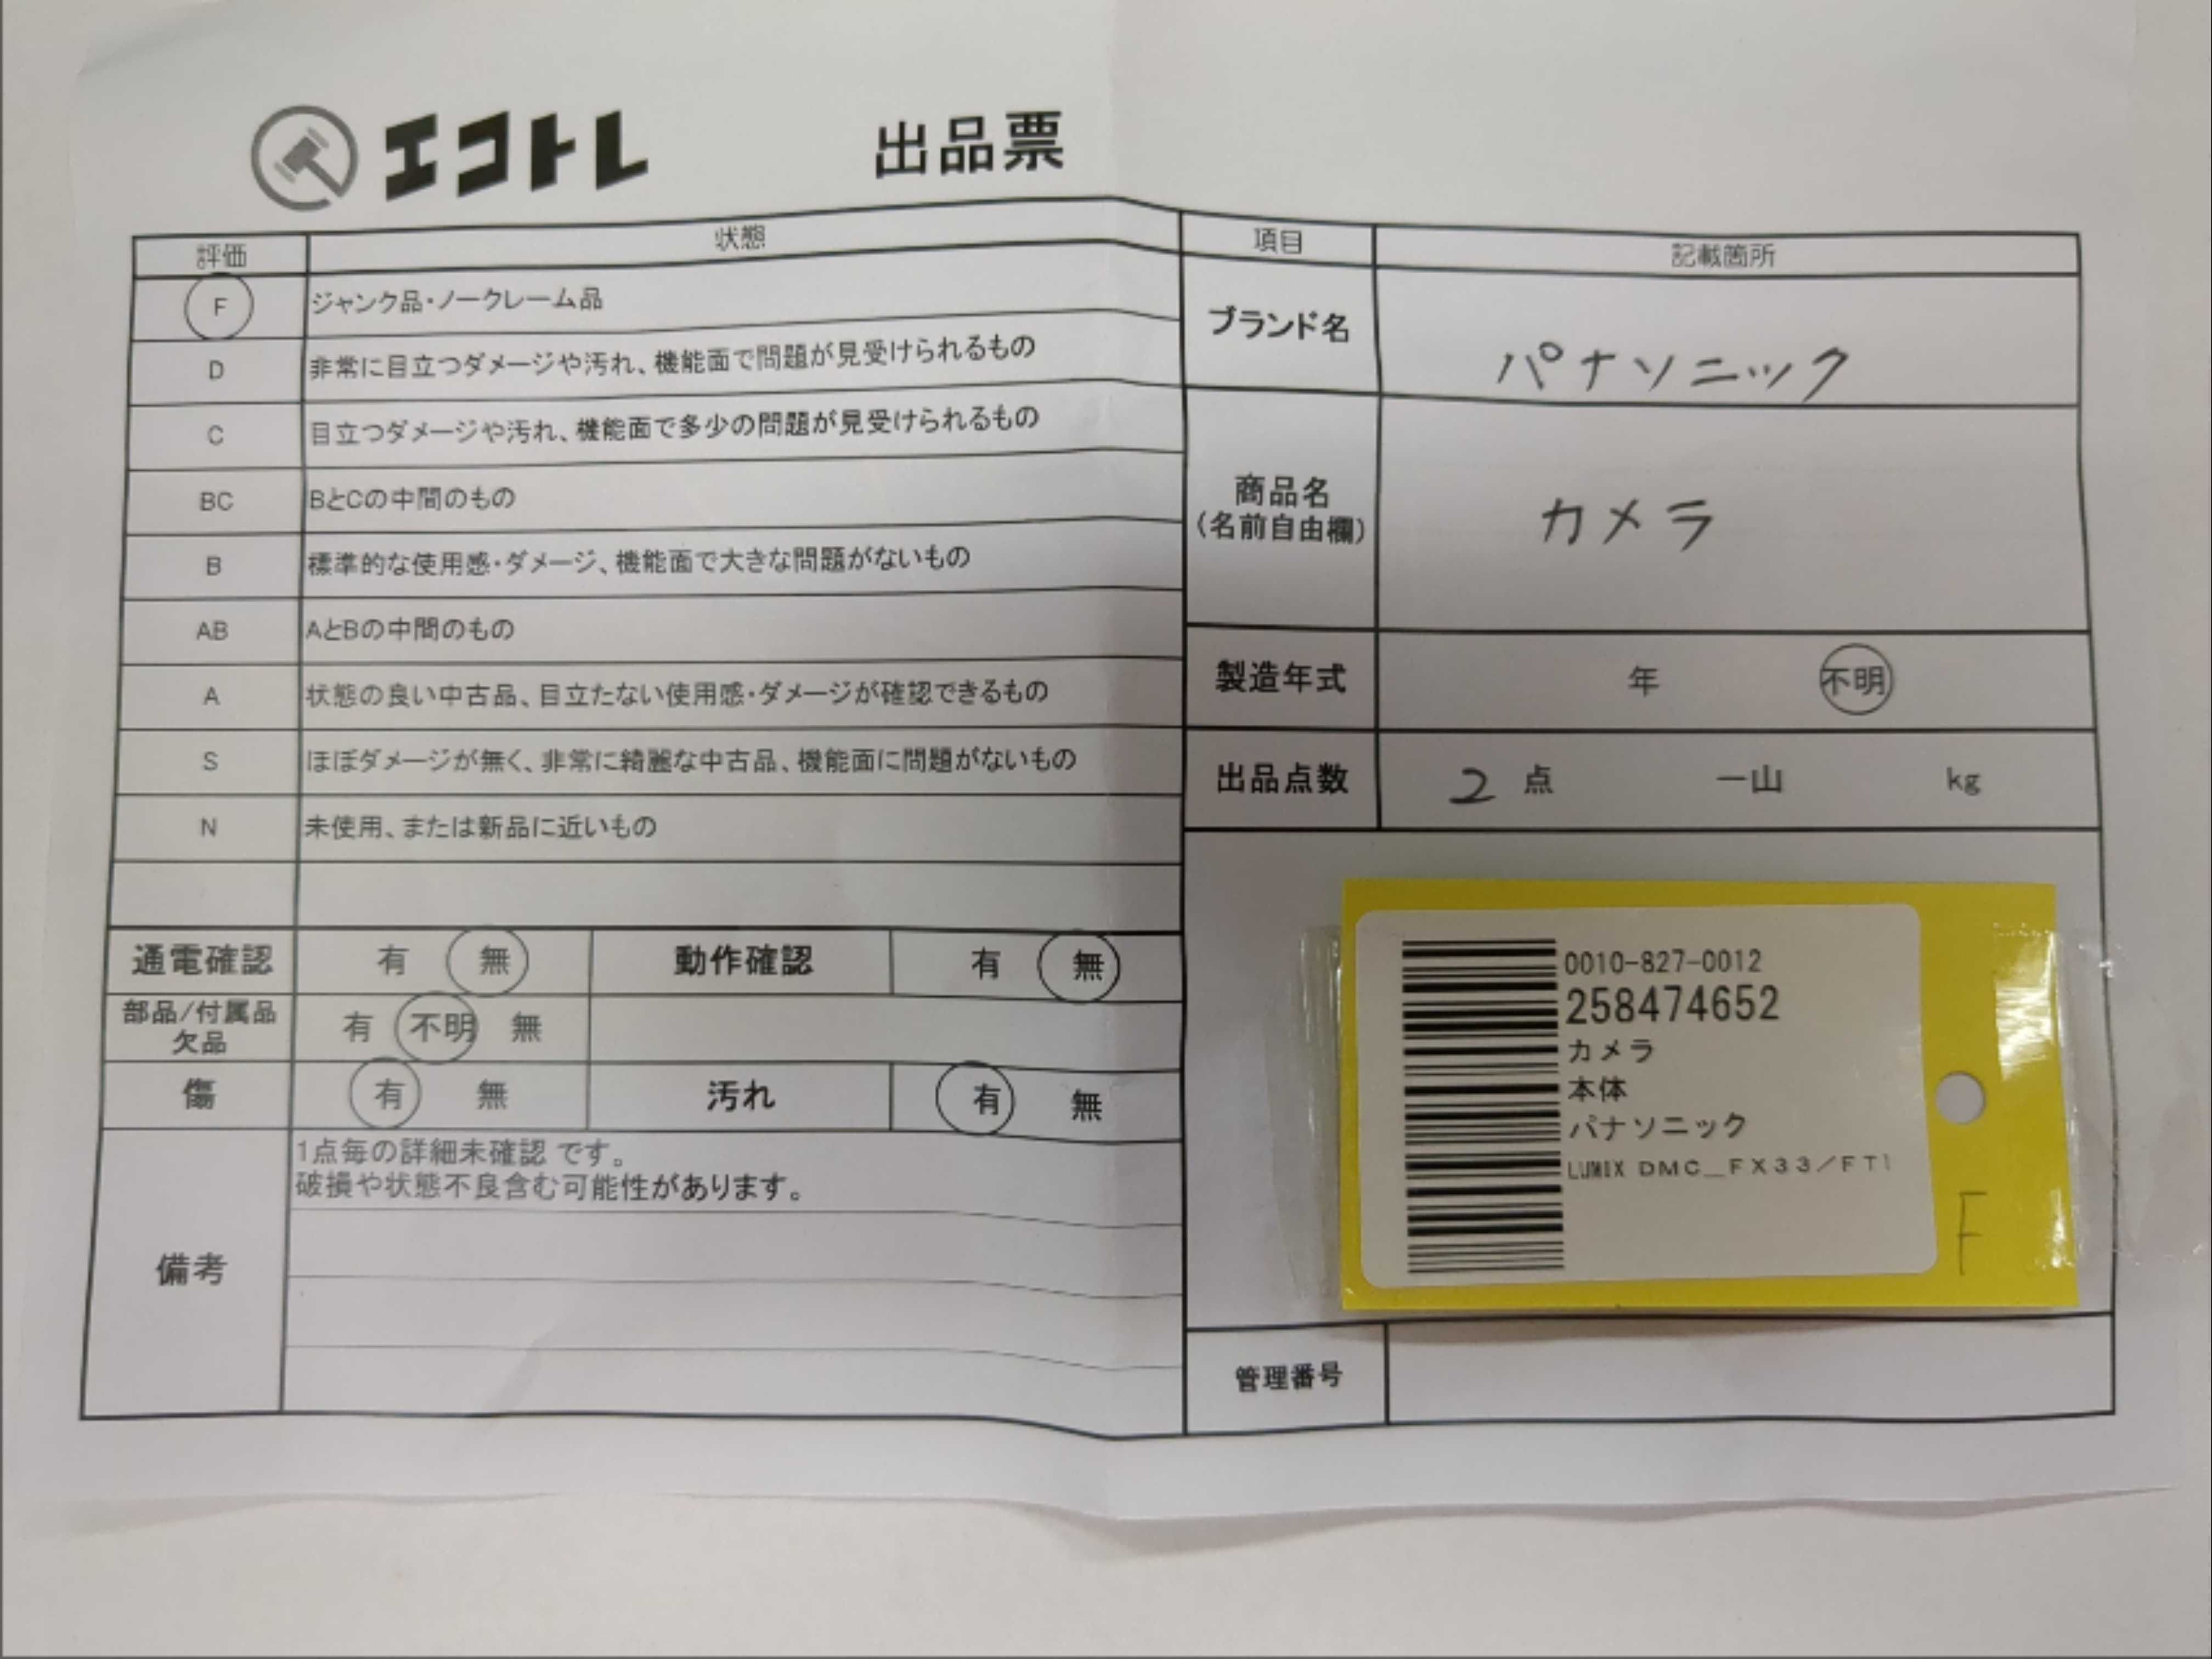 エコトレ 出品票
評価 状態
F ジャンク品・ノークレーム品
D 非常に目立つダメージや汚れ、機能面で問題が見受けられるもの
C 目立つダメージや汚れ、機能面で多少の問題が見受けられるもの
BC BとCの中間のもの
B 標準的な使用感・ダメージ、機能面で大きな問題がないもの
AB AとBの中間のもの
A 状態の良い中古品、目立たない使用感・ダメージが確認できるもの
S ほぼダメージが無く、非常に綺麗な中古品、機能面に問題がないもの
N 未使用、または新品に近いもの
通電確認 有 無 動作確認 有 無
部品/付属品
欠品 有 不明 無
傷 有 無 汚れ 有 無
備考
1点毎の詳細未確認 です。
破損や状態不良含む可能性があります。
項目 記載箇所
ブランド名 パナソニック
商品名
(名前自由欄) カメラ
製造年式 年 不明
出品点数 2 点 一山 kg
0010-827-0012
258474652
カメラ
本体
パナソニック
LUMIX DMC_FX33/FT1
F
管理番号